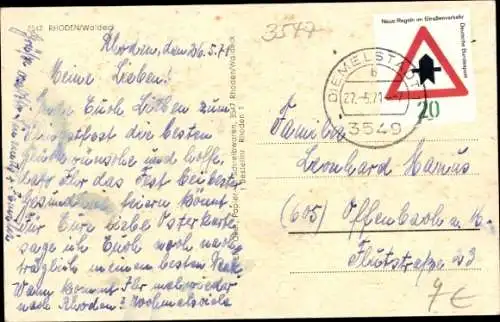 3542 RHODEN/Waldeck
Rhoden, den 26.5.71
Meine Lieben!
Euch Lieben zum
Pfingstfest die besten
Glückwünsche und hoffe,
daß Ihr das Fest bei bester
Gesundheit feiern könnt
Für Eure liebe Osterkarte
sage ich Euch noch nach-
träglich meinen besten Dank
Wann kommt Ihr mal wieder
nach Rhoden?
3547
Neue Regeln im Straßenverkehr
Deutsche Bundespost
20
DIEMELSTADT
b
27.-5.71
3549
Familie
Leonhard
(605) Offenbach a. M.
Flutstraße 23
7€
3547 Rhoden/Waldeck
Bestellnr. Rhoden 1